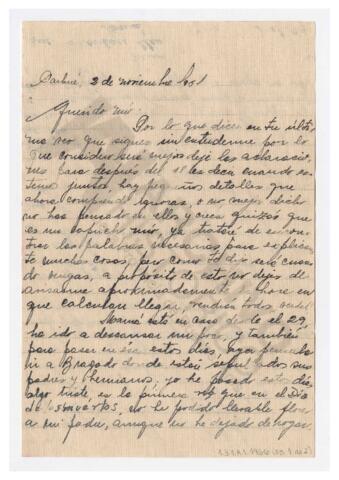 Carhué, 2 de noviembre 1951
Querido mío:
Por lo que dices en tu últi,
ma veo que sigues sin entenderme por lo
que considero será mejor deje las aclaracio,
nes para después del 18 es decir cuando es,
temos juntos, hay pequeños detalles que
ahora comprendo ignoras, o no mejor dicho
no has pensado en ellos y crees quizás que
es un capricho mío, ya trataré de encon,
trar las palabras necesarias para explicar,
te muchas cosas, pero como te dije será cuan,
do vengas, a propósito de esto no dejes de
avisarme aproximadamente la hora en
que calculan llegar, vendrán todos
Mamá está en casa desde el 29,
ha ido a descansar un poco, y también
para pasar en esa estos días, ayer pensaba
ir a Bragado donde están sepultados sus
padres y hermanos, yo he pasado estos días
algo triste, es la primera vez que en el Día
de los muertos, no he podido llevarle flores
a mi padre, aunque no he dejado de rogar.